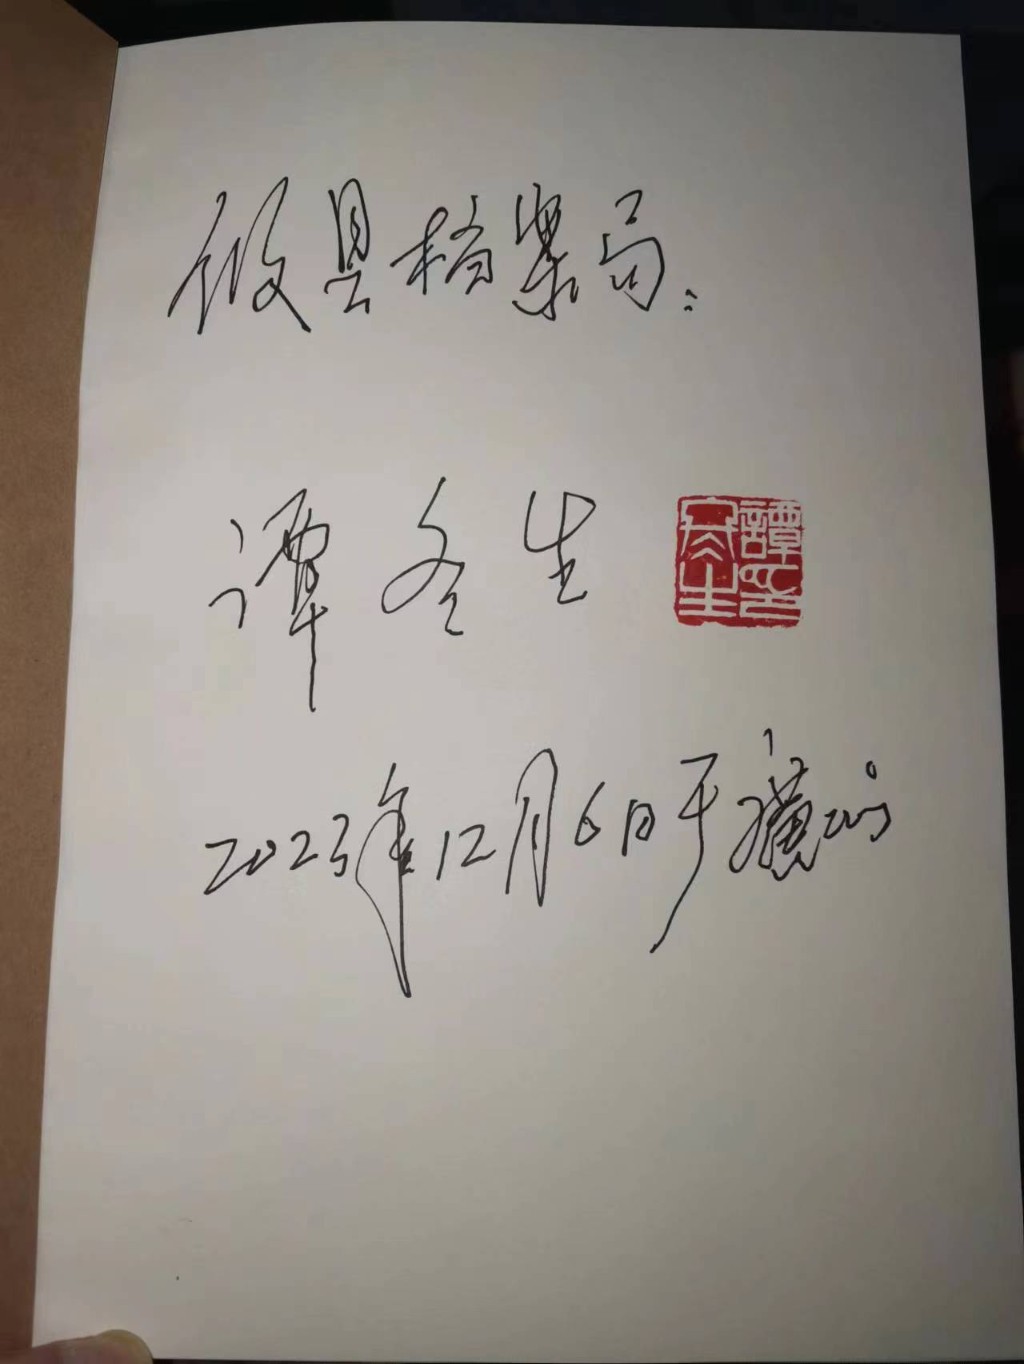 攸县档案局：
谭冬生
譚冬生印
2023年12月6日于横山